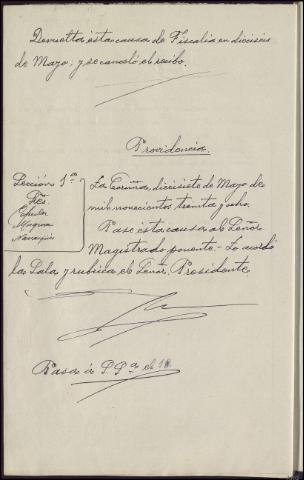 Devuelta ésta causa de Fiscalia en dieciseis
de Mayo; y se canceló el recibo.
Providencia.
Sección 1ª
Sres.
La Coruña, diecisiete de Mayo de
mil novecientos treinta y ocho.
Pase ésta causa al Señor
Magistrado ponente.- Lo acordó
la Sala y rubrica el Señor Presidente
Pasa á S.Sª el 18.